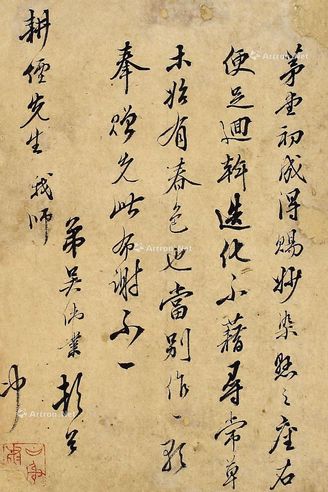 茅堂初成得賜妙染懸之座右
便足迴斡造化不藉尋常草
木始有春色也當別作一歌
奉贈先此布謝不一
弟吳偉業頓首
耕僊先生我師
冲
Artron.Net